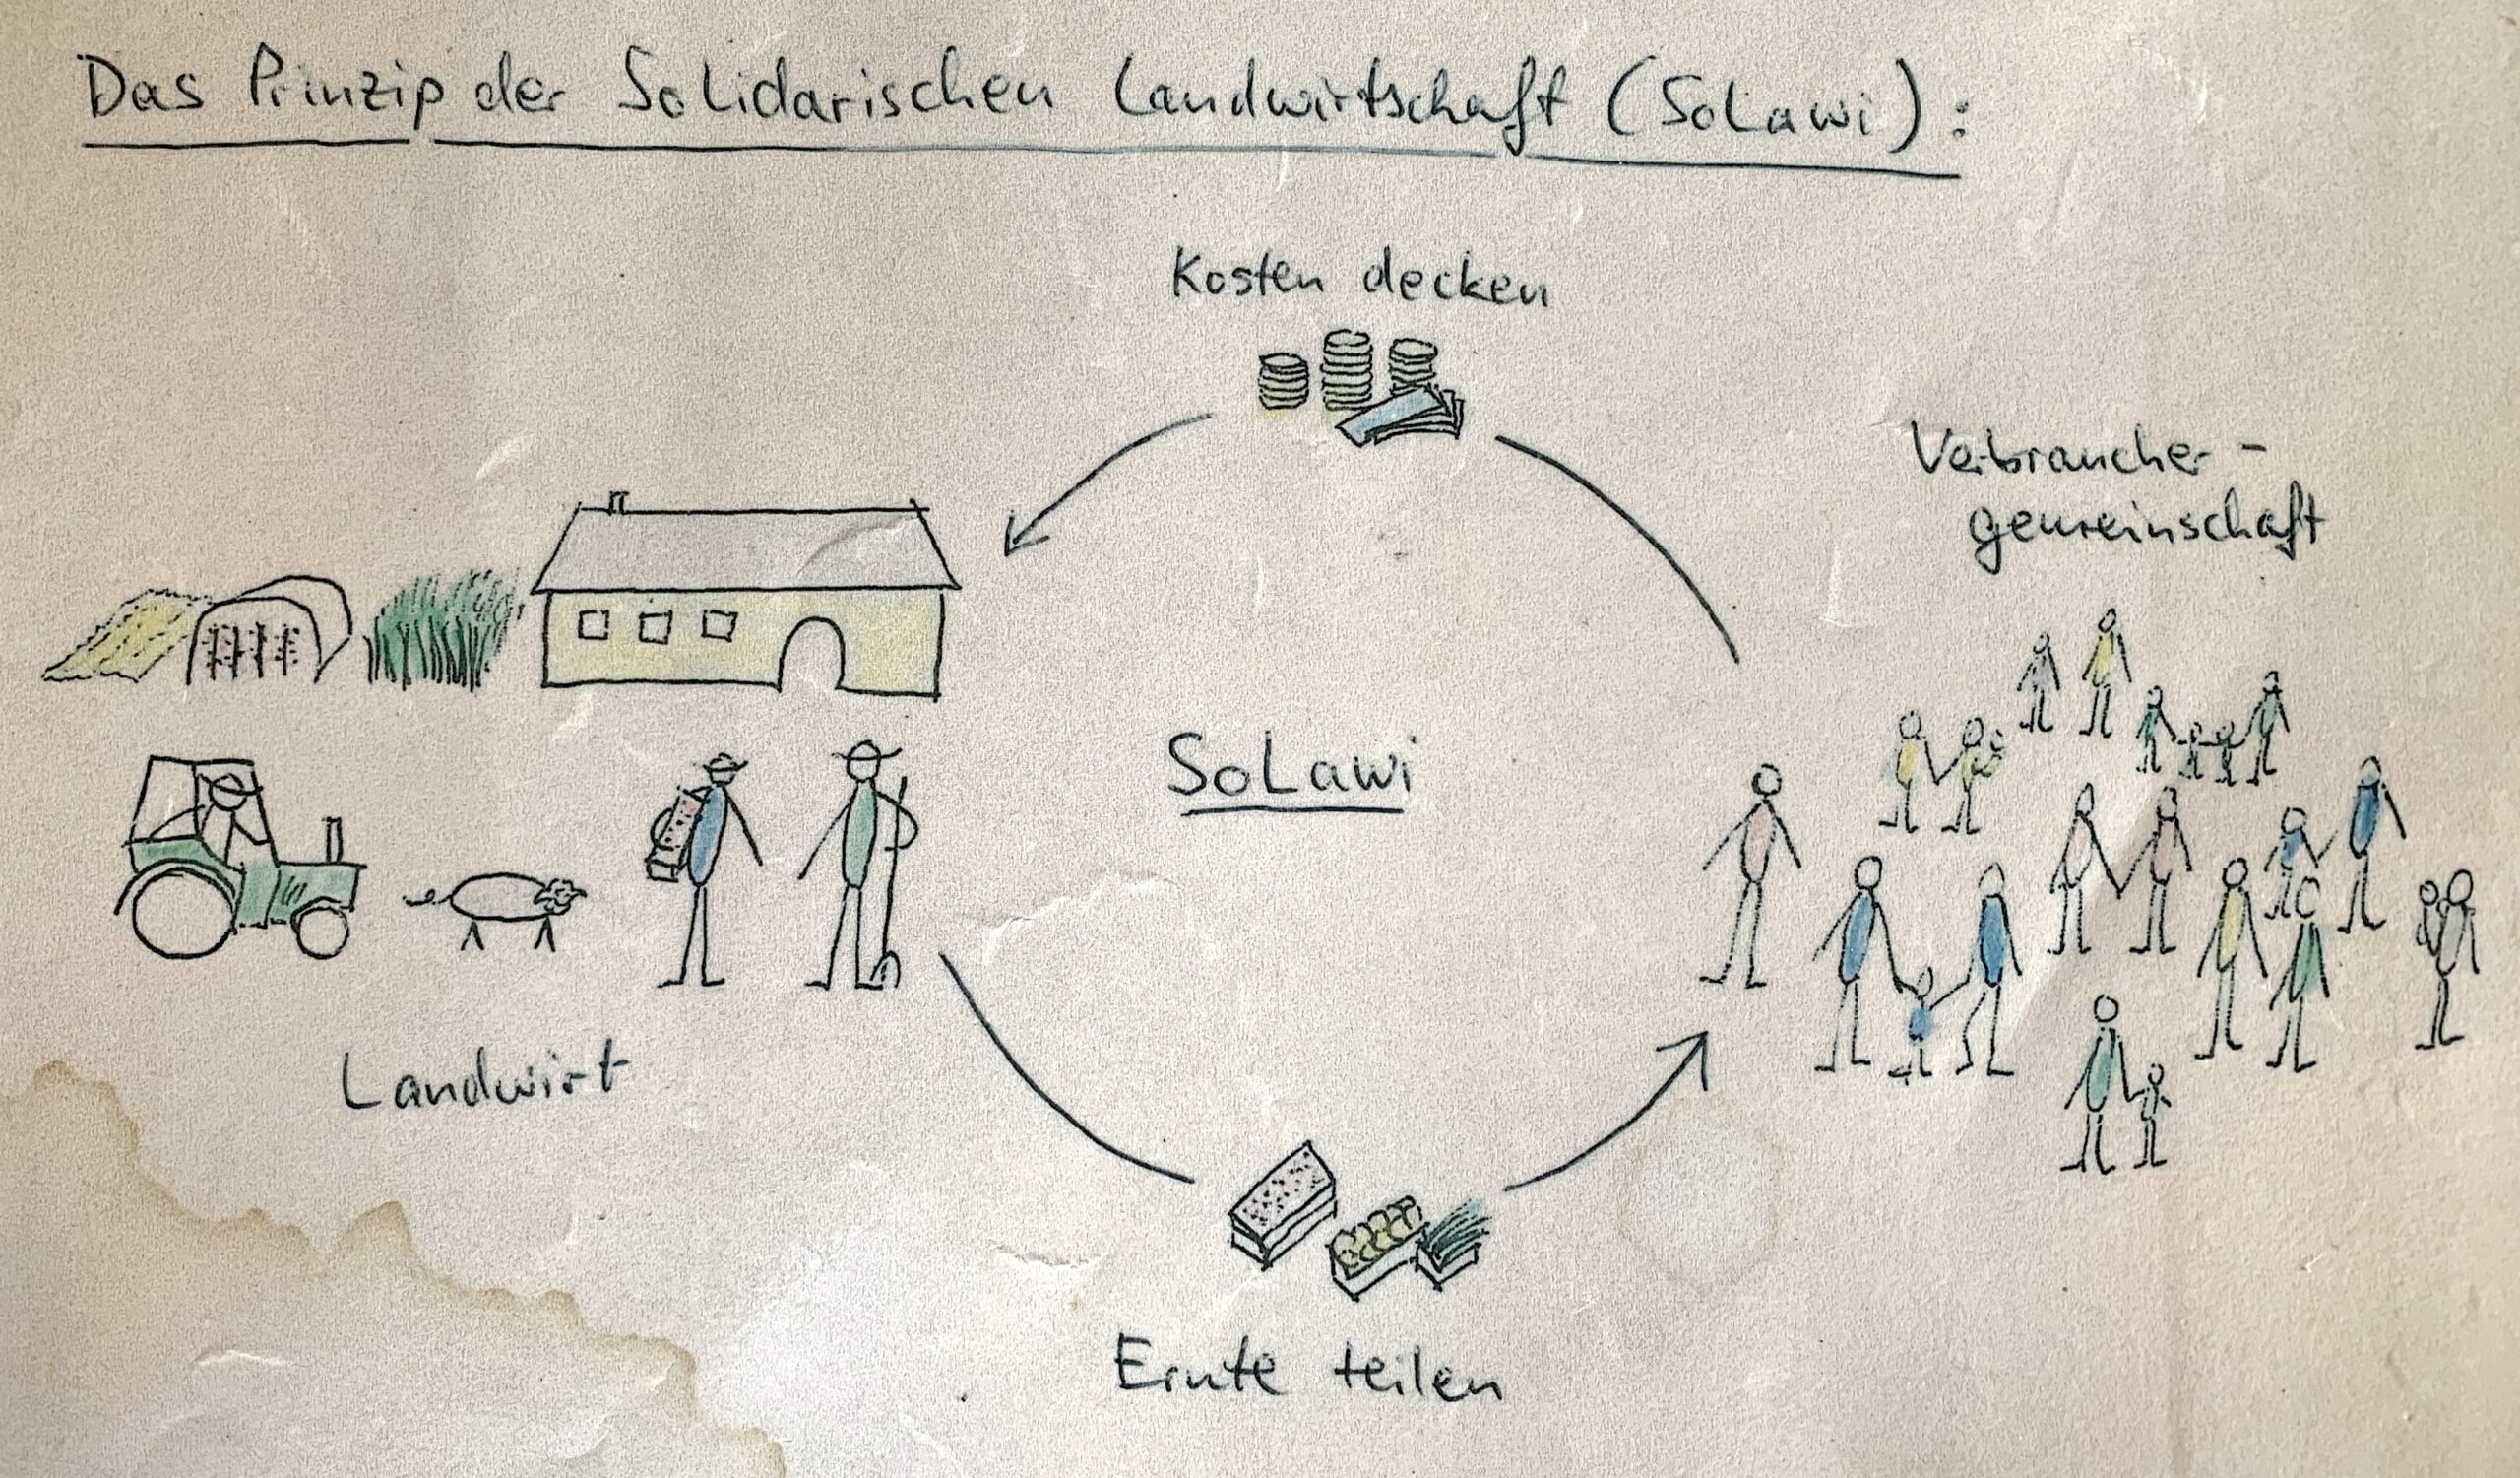 Das Prinzip der Solidarischen Landwirtschaft (SoLawi):
Kosten decken
Verbraucher-
gemeinschaft
SoLawi
Landwirt
Ernte teilen